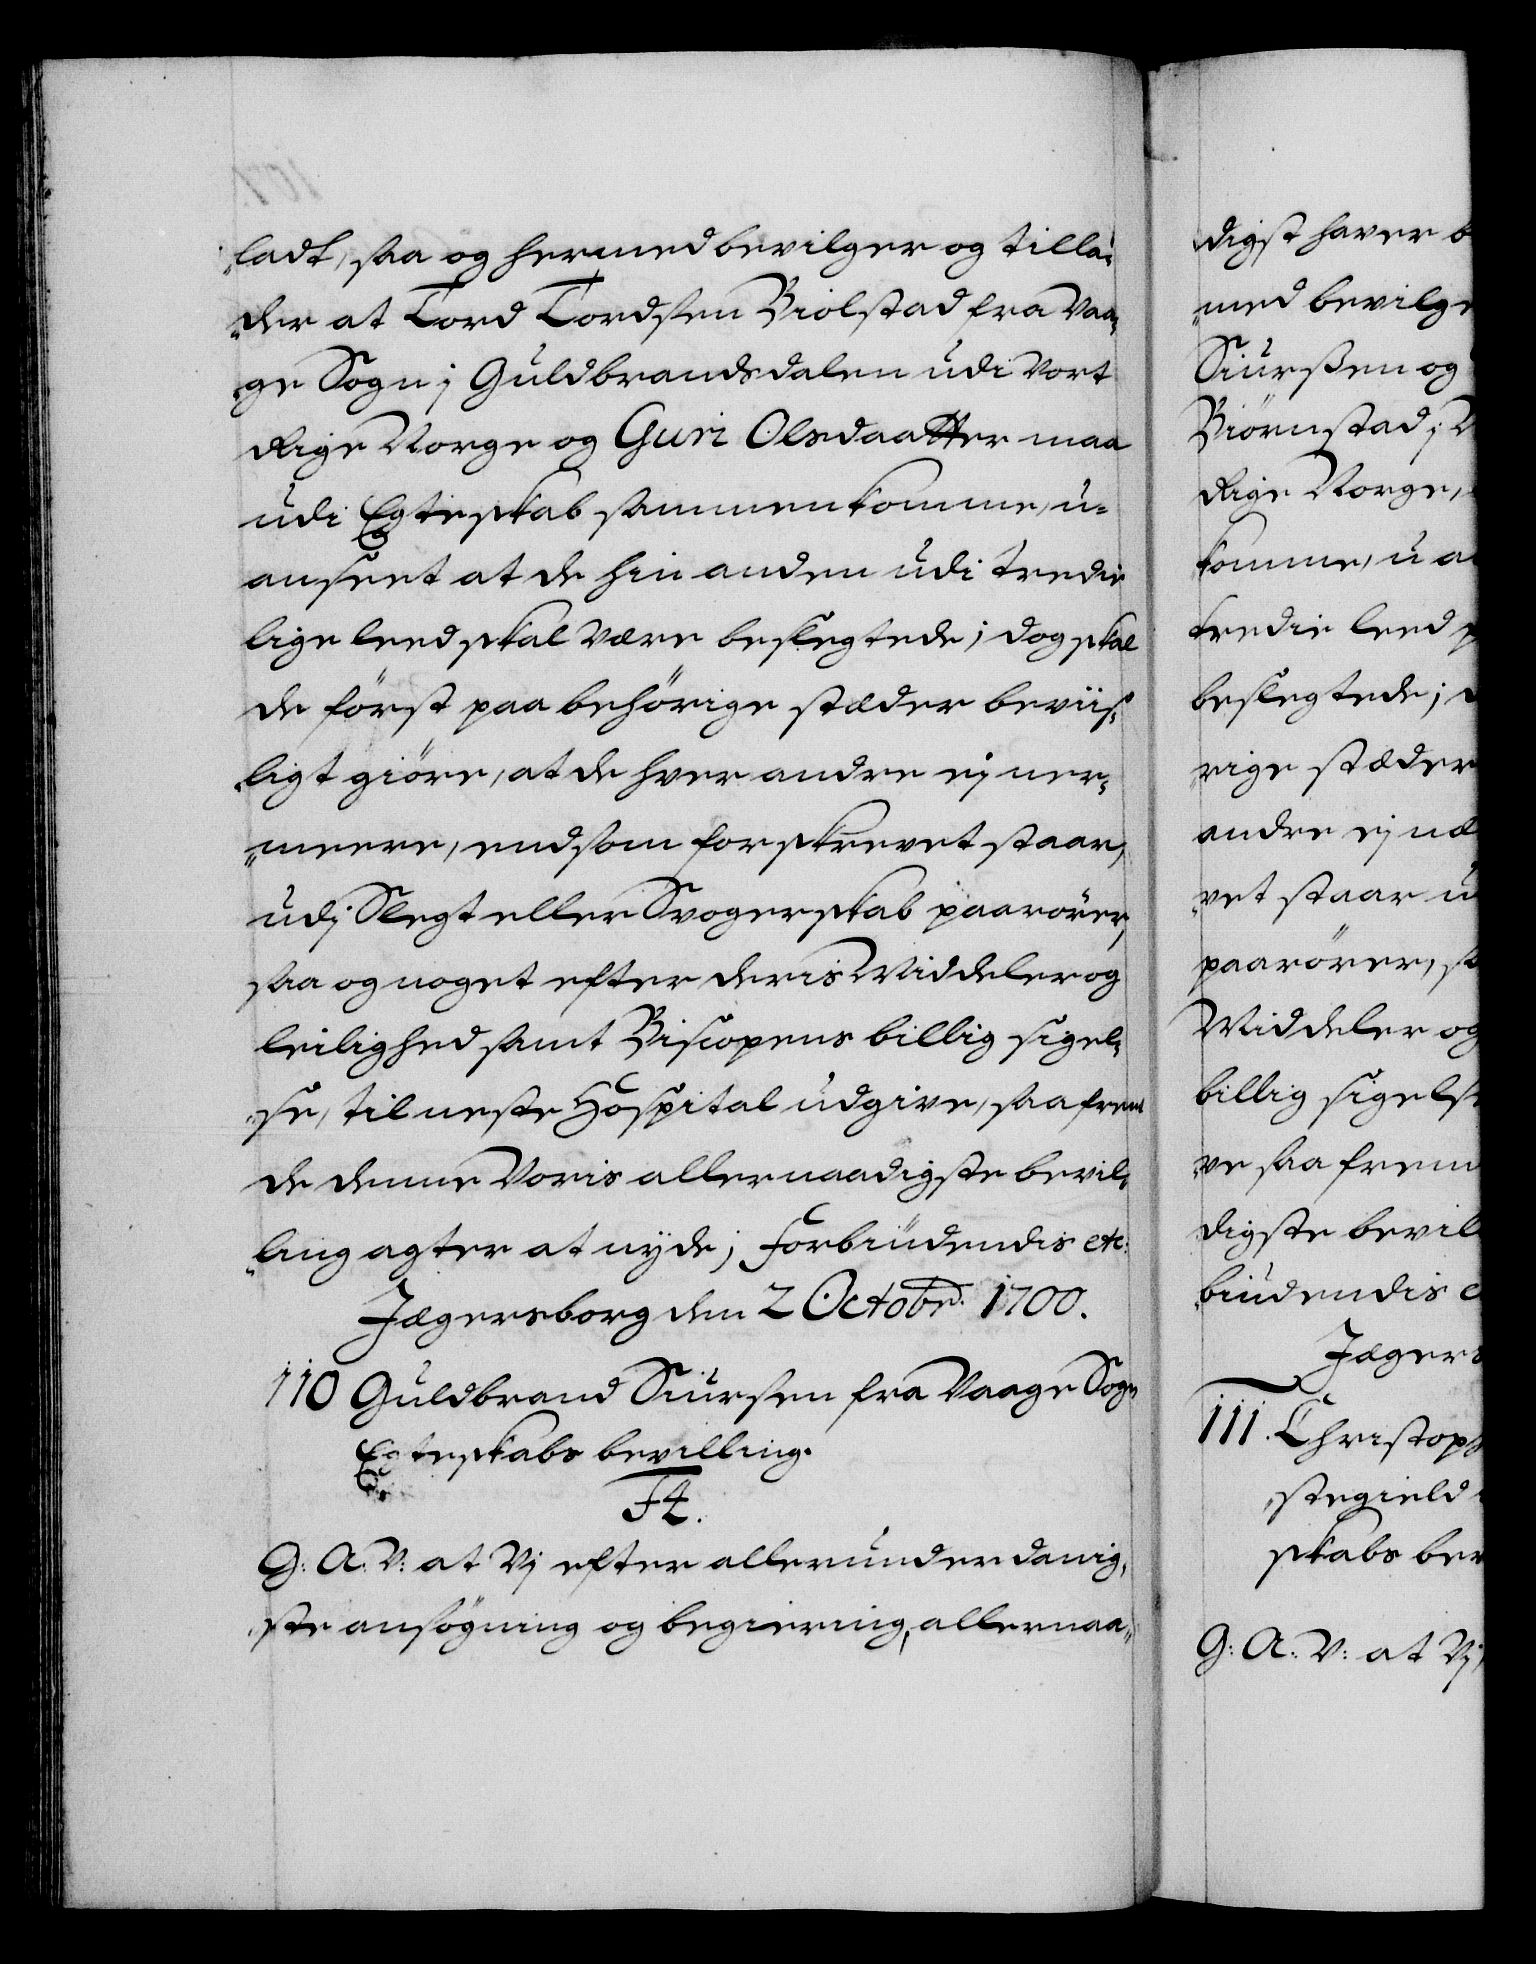 ladt, saa og hermed bevilger og tilla-
der at Tord Tordsen Biolstad fra Vaa-
ge Sogn j Guldbrandsdalen udi Vort
Rige Norge og Guri Olsdaatter maa
udi Egteskab sammenkomme, u-
anseet at de hin anden udi tredie
lige leed skal være beslegtede; dog skal
de först paa behörige stæder beviis-
ligt giöre, at de hver andre ej ner-
meere, end som forskrevet staar,
udj Slegt eller Svogerskab paarörer,
saa og noget efter deris Middeler og
leilighed samt Biscopens billig sigel-
se, til neste Hospital udgive, saafremt
de denne Voris allernaadigste bevil-
ling agter at nyde; Forbiüdendis etc:
Jægersborg den 2 Octobr. 1700.
110 Guldbrand Siursen fra Vaage Sogn
Egteskabs bevilling.
G: A: V: at Vj efter allerunderdanig-
ste ansögning og begiering, allernaa-
digst haver b
med bevilge
Siurssen og
Biörnstad j V
Rige Norge,
komme, u a
tredie leed
beslegtede; d
rige stæder
andre ej næ
vet staar u
paarörer, s
Middeler og
billig sigels
ve saa frem
digste bevil
biudendis e
Jægers
111. Christoph
stegield
skabs bev
G: A: V: at Vj,